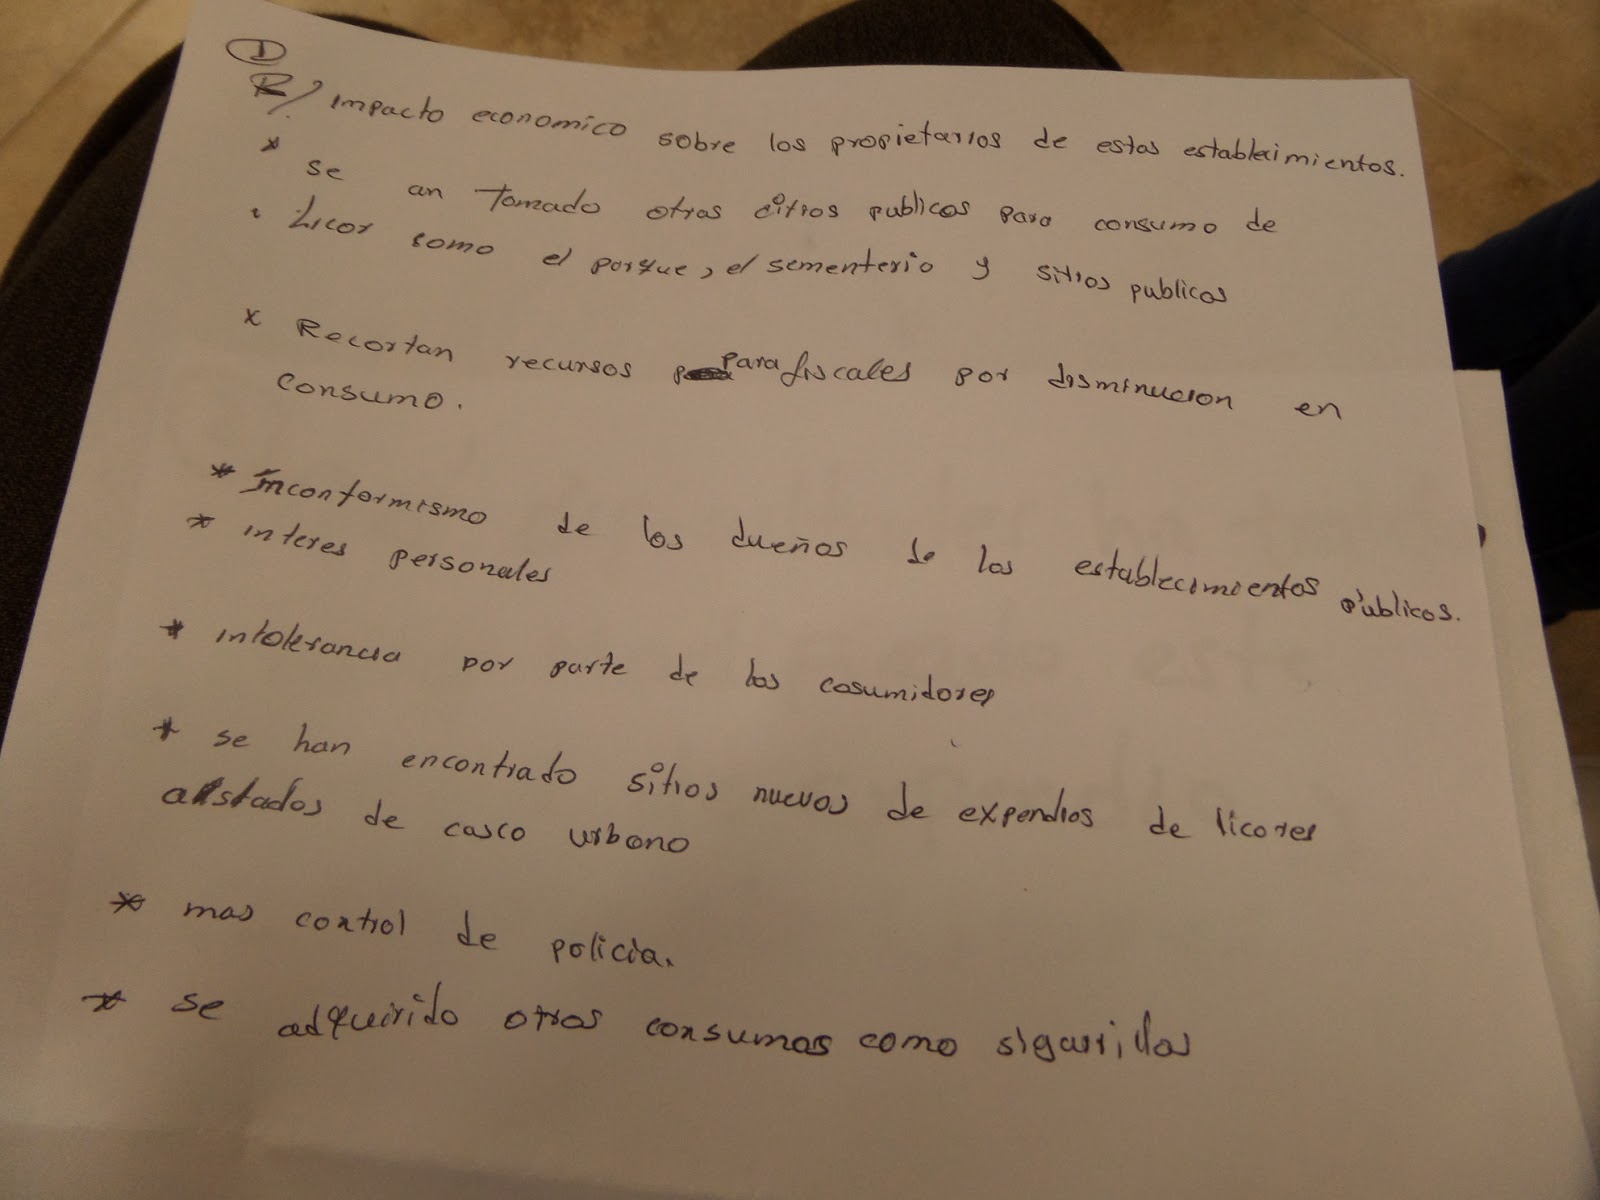 ①
R/. Impacto economico sobre los propietarios de estos establecimientos.
* se an Tomado otros citios publicos para consumo de
• Licor como el porque, el sementerio y sitios publicos
x Recortan recursos parafiscales por disminucion en
consumo.
* Inconformismo de los dueños de los establecimientos públicos.
* interes personales
* intolerancia por parte de los cosumidores
* se han encontrado sitios nuevos de expendios de licores
alstados de casco urbono
* mas control de policia.
* se adquirido otros consumos como sigarrillos